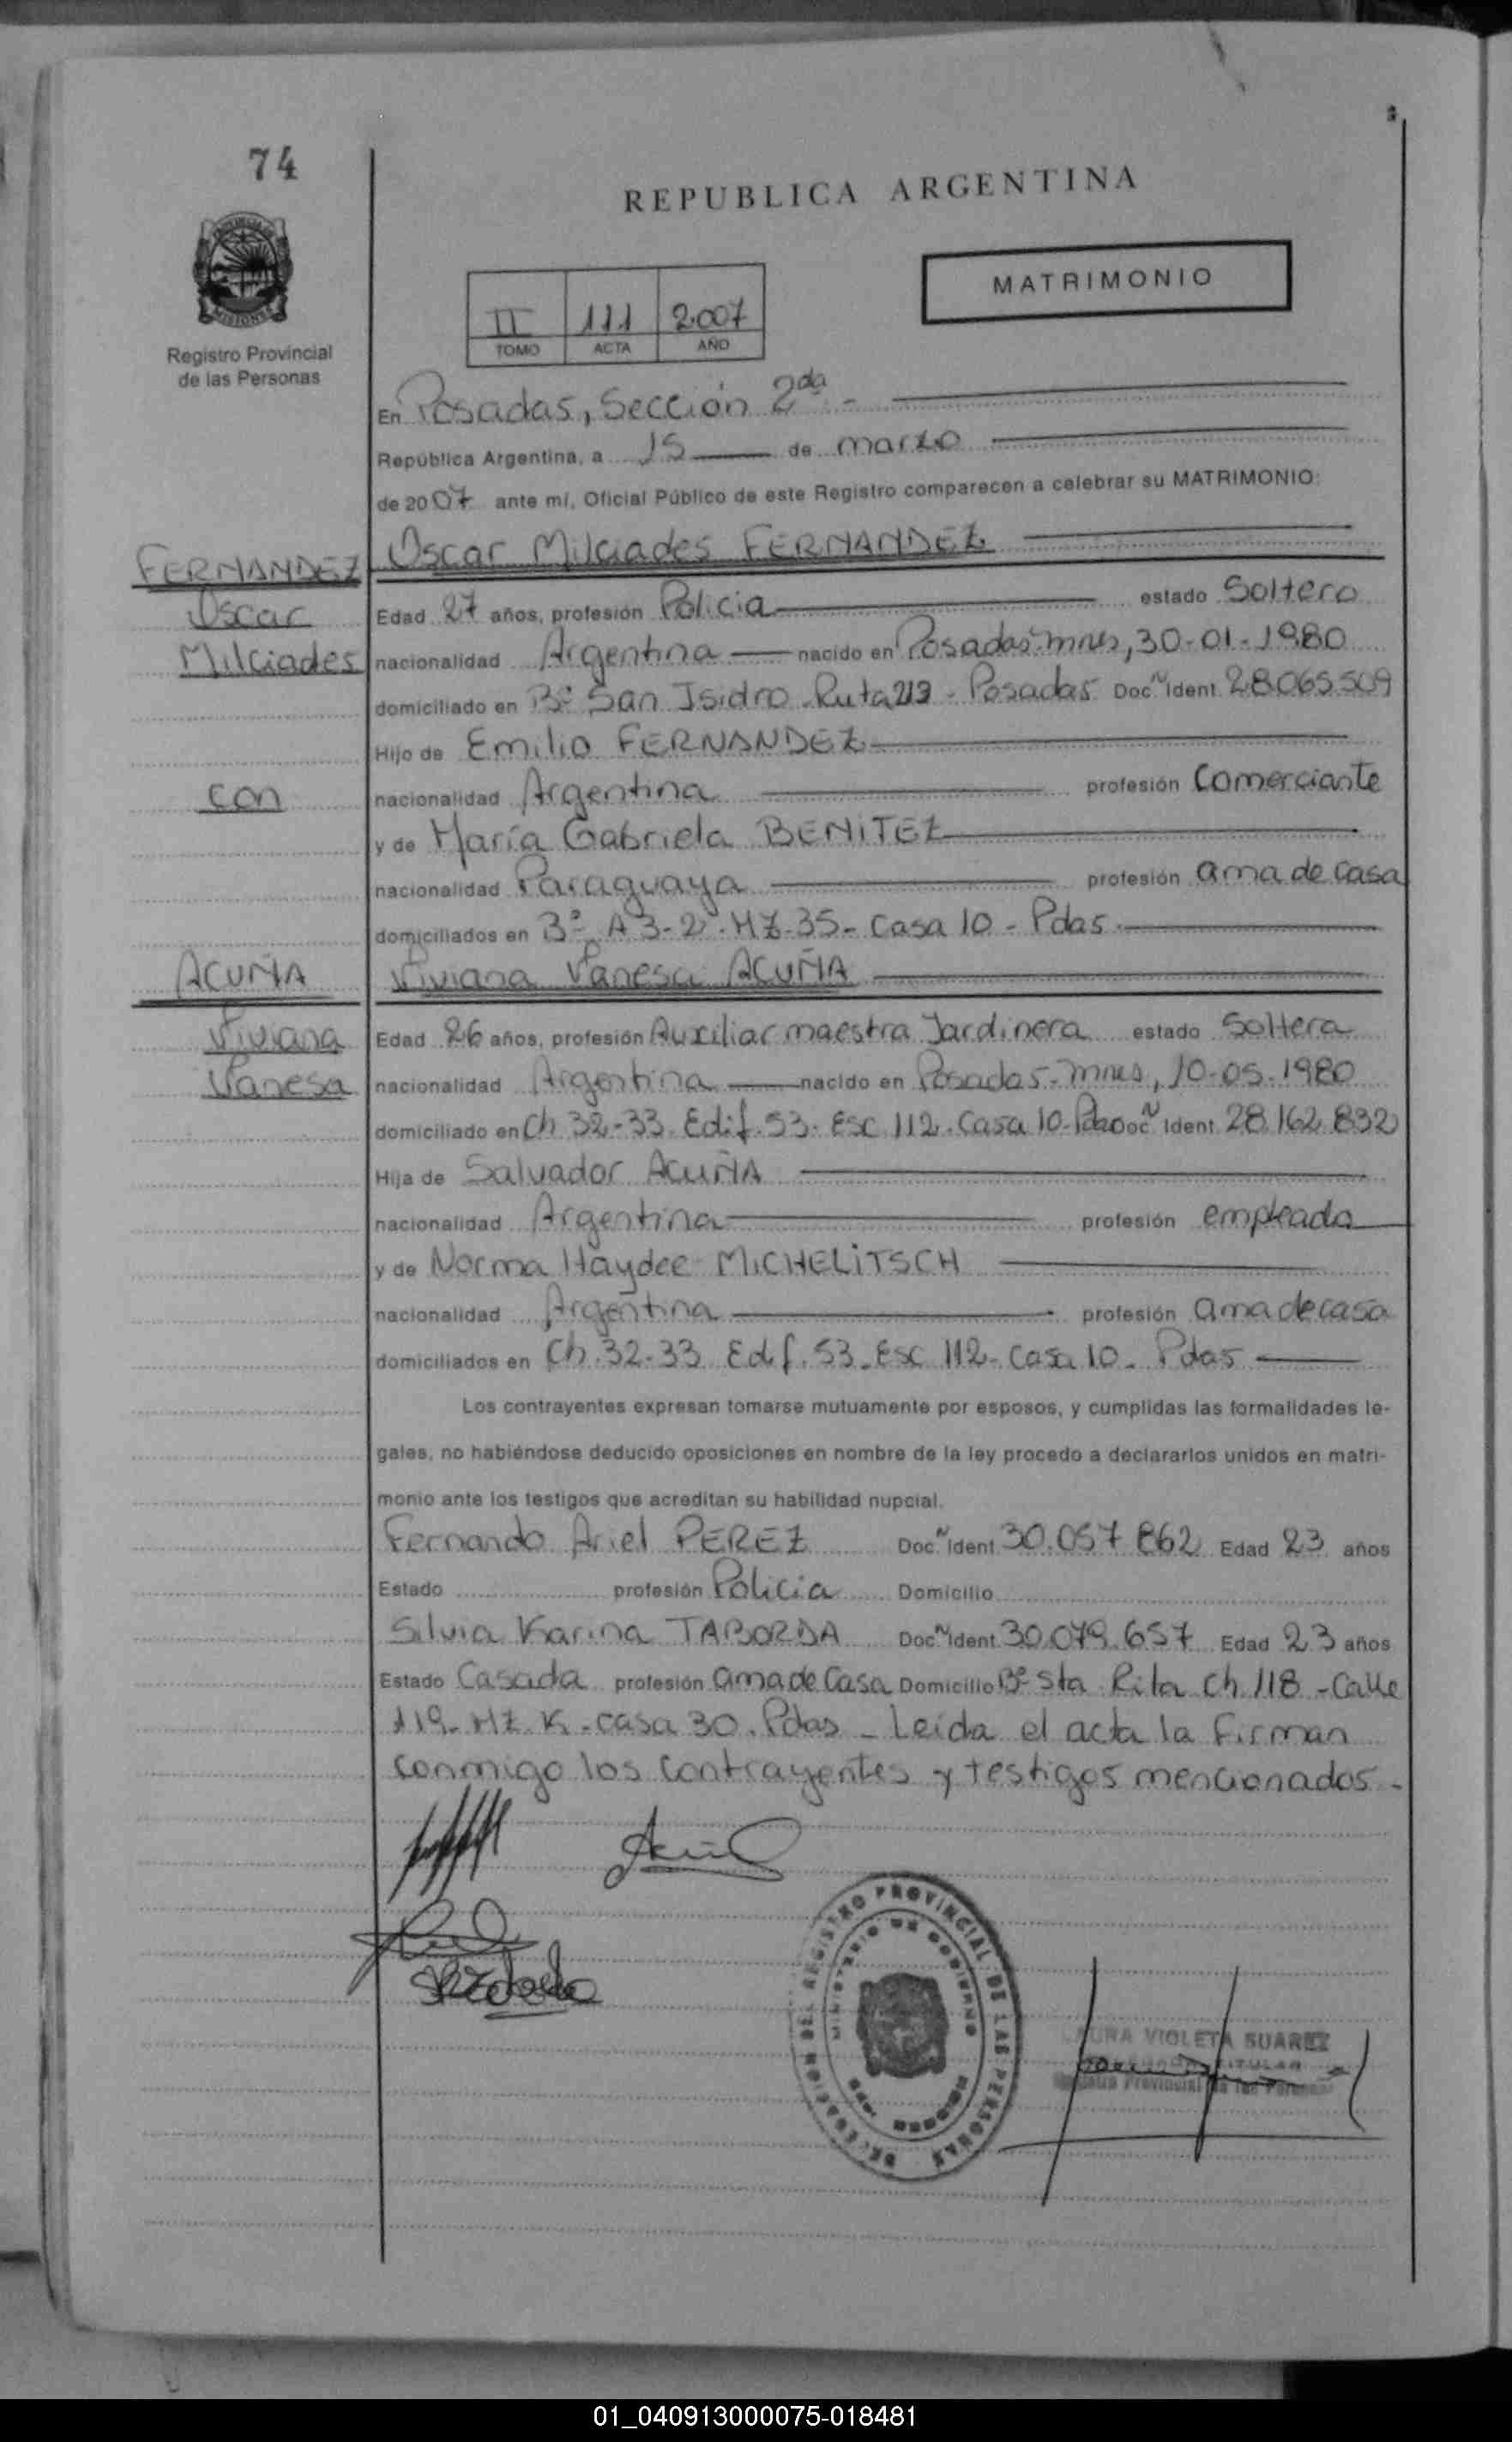 74
REPUBLICA ARGENTINA
PROVINCIA DE
MISIONES
Registro Provincial
de las Personas
MATRIMONIO
II 111 2007
TOMO ACTA AÑO
En Posadas, Sección 2da.-
República Argentina, a 15 de marzo
de 2007 ante mí, Oficial Público de este Registro comparecen a celebrar su MATRIMONIO:
FERNANDEZ Oscar Milciades FERNANDEZ
Oscar Edad 27 años, profesión Policia estado Soltero
Milciades nacionalidad Argentina nacido en Posadas-mnes, 30-01-1980
domiciliado en Bº San Isidro-Ruta 213-Posadas Doc. Ident. 28.065.509
Hijo de Emilio FERNANDEZ
con nacionalidad Argentina profesión Comerciante
y de María Gabriela BENITEZ
nacionalidad Paraguaya profesión ama de casa
domiciliados en Bº A 3-2-MZ-35-Casa 10-Pdas.
ACUÑA Viviana Vanesa ACUÑA
Viviana Edad 26 años, profesión Auxiliar maestra Jardinera estado Soltera
Vanesa nacionalidad Argentina nacido en Posadas-mnes, 10-05-1980
domiciliado en Ch 32-33 Edif. 53-Esc 112-Casa 10- Doc. Ident. 28.162.832
Hija de Salvador ACUÑA
nacionalidad Argentina profesión empleado
y de Norma Haydee MICHELITSCH
nacionalidad Argentina profesión ama de casa
domiciliados en Ch.32-33 Edif.53-Esc 112-Casa 10-Pdas
Los contrayentes expresan tomarse mutuamente por esposos, y cumplidas las formalidades le-
gales, no habiéndose deducido oposiciones en nombre de la ley procedo a declararlos unidos en matri-
monio ante los testigos que acreditan su habilidad nupcial.
Fernando Ariel PEREZ Doc. Ident. 30.057.862 Edad 23 años
Estado profesión Policia Domicilio
Silvia Karina TABORDA Doc. Ident. 30.079.657 Edad 23 años
Estado Casada profesión ama de Casa Domicilio Bº Sta Rita Ch 118-Calle
119-MZ K-casa 30.Pdas-Leida el acta la firman
conmigo los contrayentes y testigos mencionados-
DELEGACION DEL REGISTRO PROVINCIAL DE LAS PERSONAS
MINISTERIO DE GOBIERNO
VIOLETA SUAREZ
TITULAR
Provincial de las
01_040913000075-018481